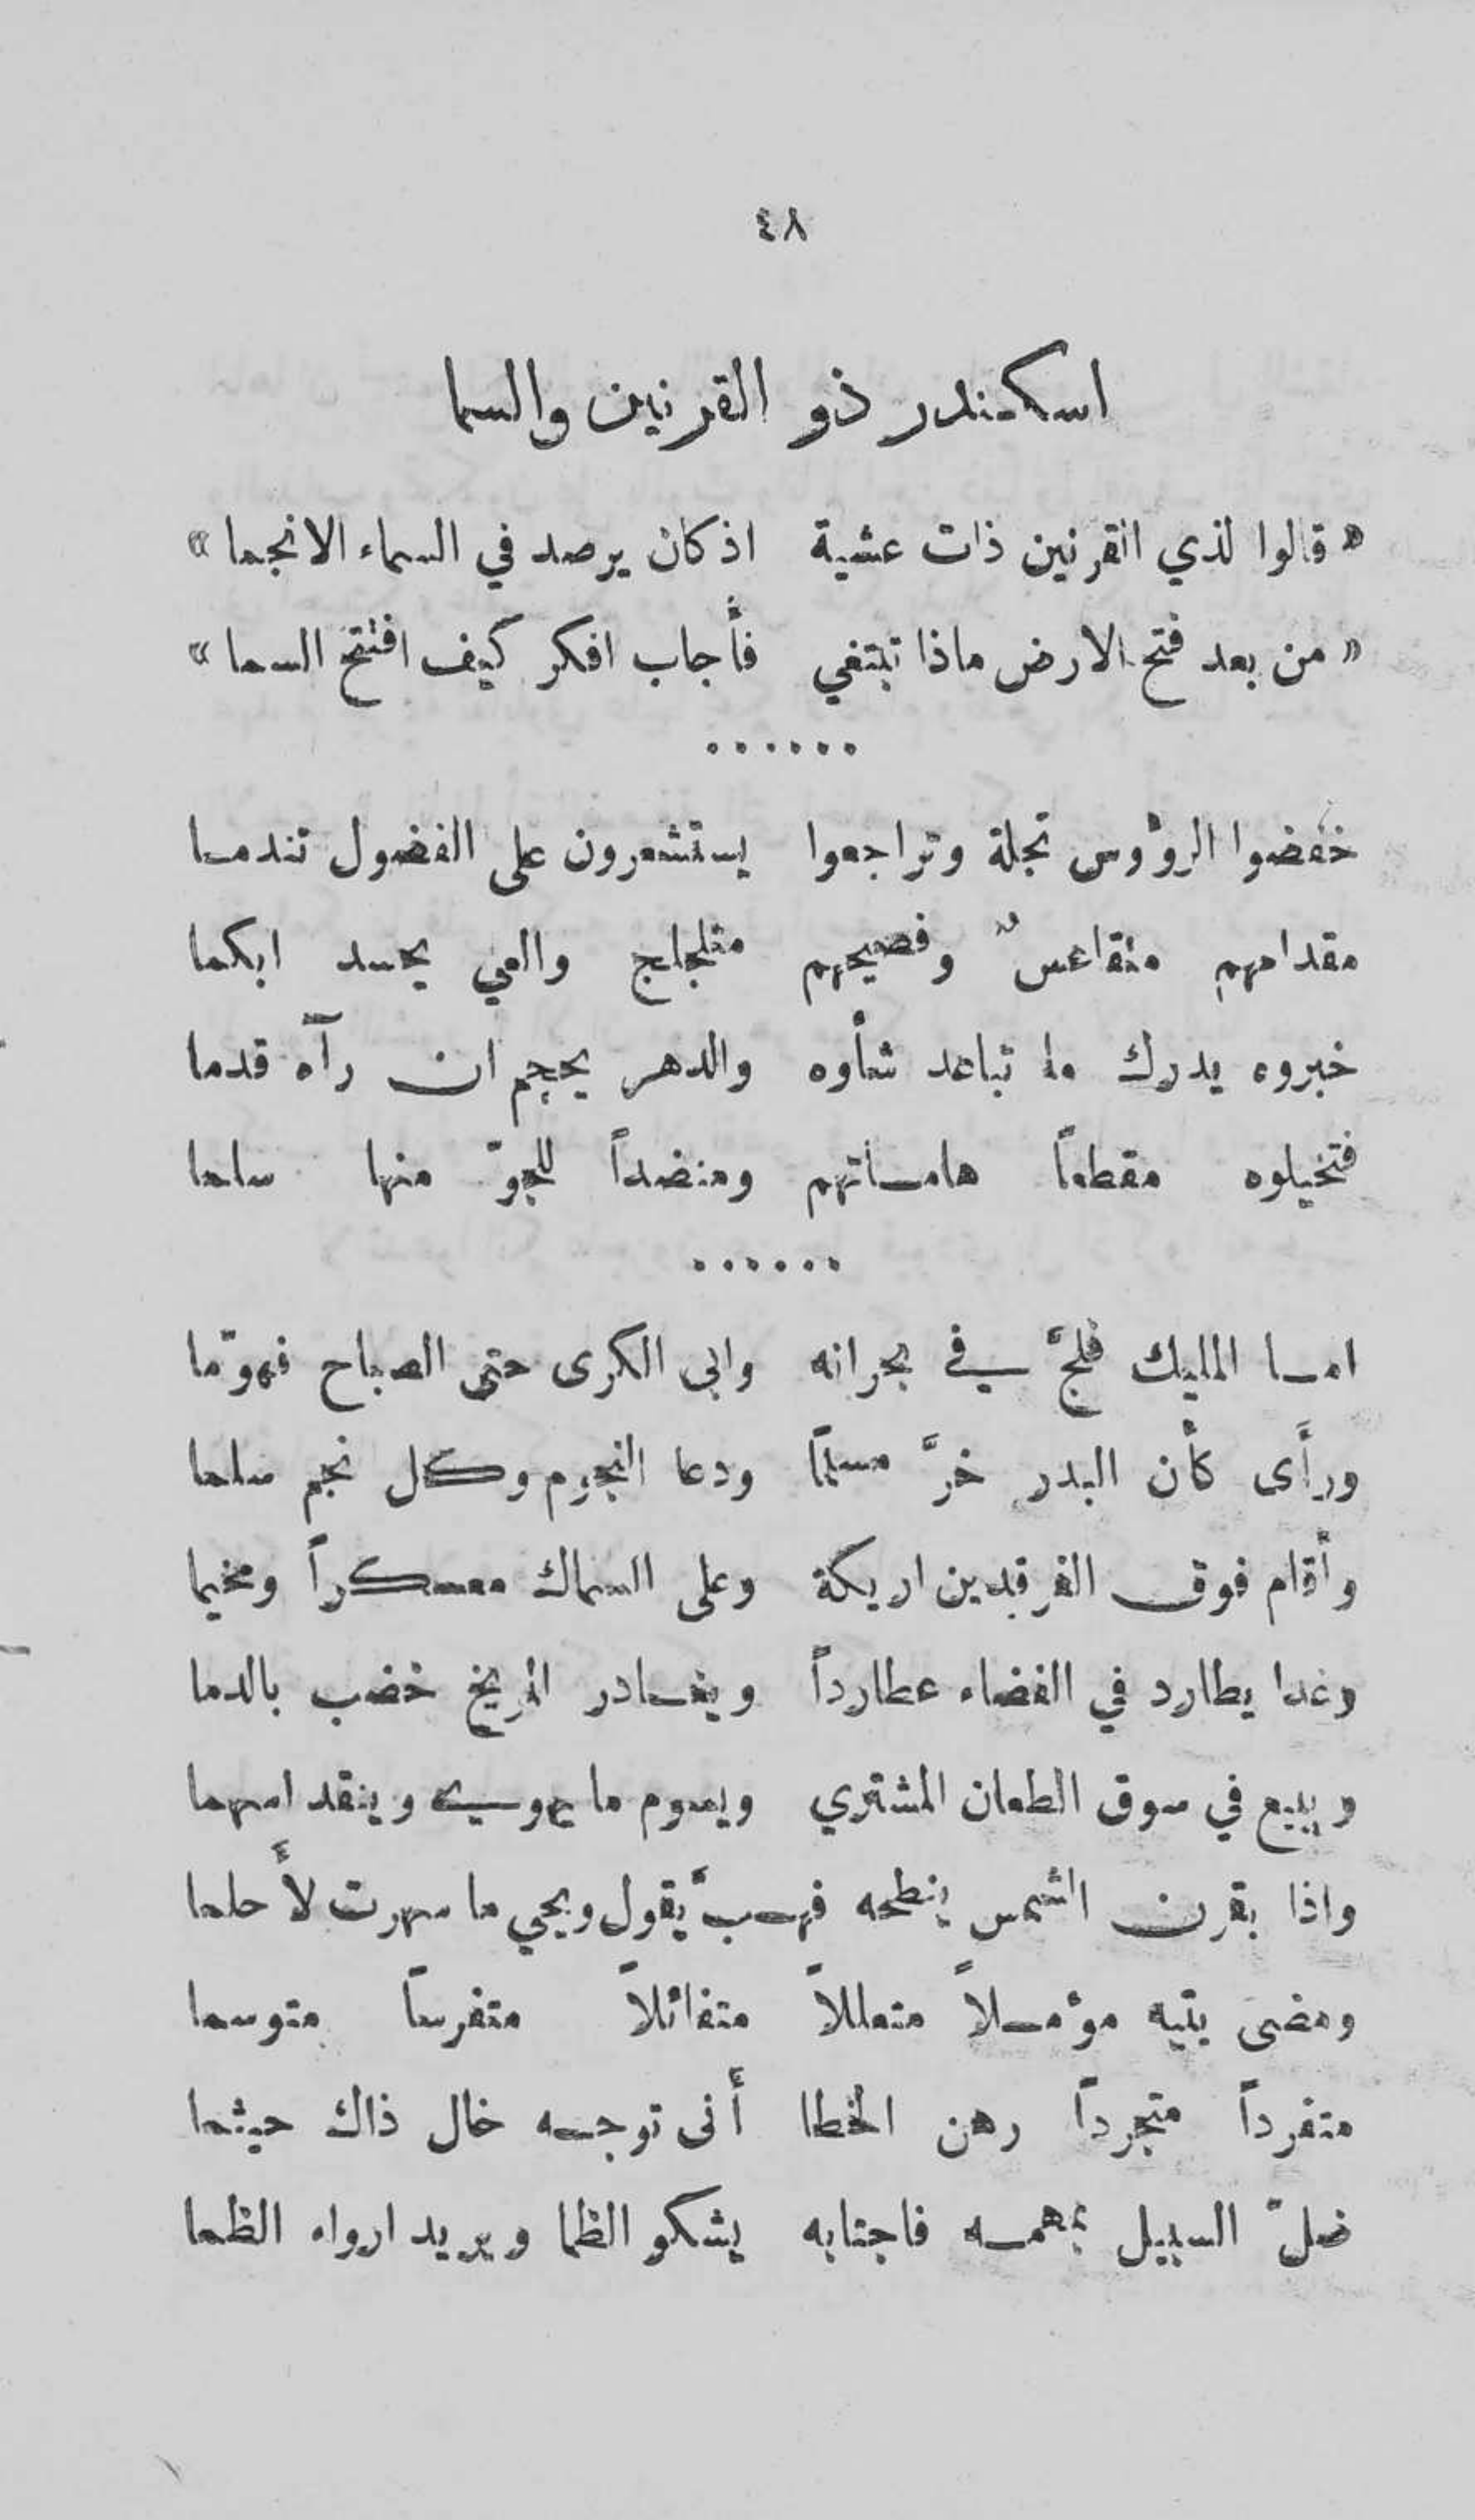 ٤٨
اسكندر ذو القرنين والسما
« قالوا لذي القرنين ذات عشية اذ كان يرصد في السماء الانجما »
« من بعد فتح الارض ماذا تبتغي فأجاب افكر كيف افتتح السما »
......
خفضوا الرؤوس تجلة وتراجعوا يستشعرون على الفضول تندما
مقدامهم متقاعسٌ وفصيحهم متلجلج والعي يحسد ابكما
خبروه يدرك ما تباعد شأوه والدهر يحجم ان رآه قدما
فتخيلوه مقطعاً هاماتهم ومنضداً للجوّ منها سلما
......
امسا المليك فلجَّ في بحرانه وابى الكرى حتى الصباح فهوّما
ورأى كأن البدر خرَّ مسلماً ودعا النجوم وكل نجم سلما
وأقام فوق الفرقدين اريكة وعلى السماك معسكراً ومخيما
وغدا يطارد في الفضاء عطارداً ويغادر المريخ خضب بالدما
ويبيع في سوق الطعان المشتري ويسوم ما يهوي وينقد اسهما
واذا بقرن الشمس ينطحه فهبَّ يقول ويحي ما سهرت لأحلما
ومضى يتيه مؤملاً متعللاً متفائلاً متفرساً متوسما
متفرداً متجرداً رهن الخطا أنى توجه خال ذاك حيثما
ضلّ السبيل بمهمه فاجتابه يشكو الظما ويريد ارواء الظما